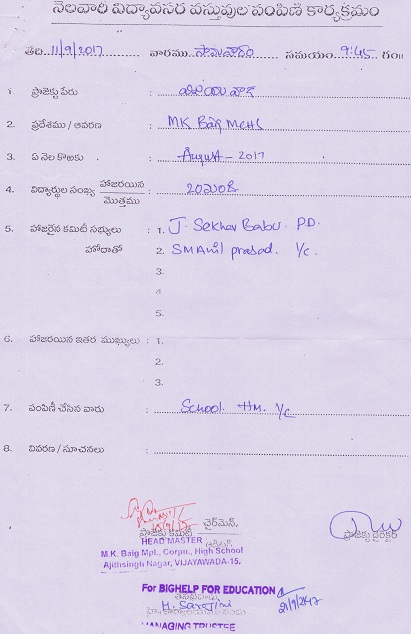 నెలవారి విద్యావసర వస్తువుల పంపిణి కార్యక్రమం
తేది 11/9/2017 వారము సోమవారం సమయం 9:45 గం॥
1. ప్రాజెక్టు పేరు :
2. ప్రదేశము / ఆవరణ : MK Baig MCHS
3. ఏ నెల కొఱకు : August - 2017
4. విద్యార్థుల సంఖ్య హాజరయిన / మొత్తము : 20మంది
5. హాజరైన కమిటీ సభ్యులు : 1. J. Sekhar Babu. P.D.
హోదాతో 2. SM Anil prasad. I/c.
3.
4.
5.
6. హాజరయిన ఇతర ముఖ్యులు : 1.
2.
3.
7. పంపిణీ చేసిన వారు : School. HM. I/c
8. వివరణ / సూచనలు :
ఛైర్మెన్,
ప్రాజెక్టు కమిటీ ప్రాజెక్టు డైరెక్టర్
HEAD MASTER
M.K. Baig Mpl., Corpn., High School
Ajithsingh Nagar, VIJAYAWADA-15.
For BIGHELP FOR EDUCATION
MANAGING TRUSTEE